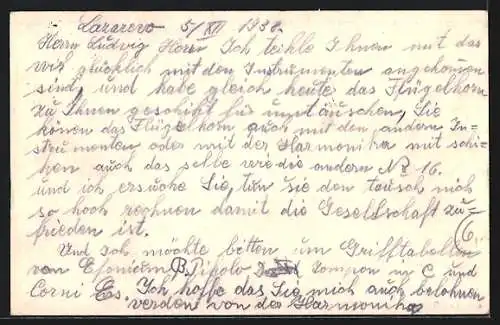 Lazarevo 5/XII 1938.
Herrn Ludvig Horn Ich teihle Ihnen mit das
wir glücklich mit den Instrumenten angekommen
sind, und habe gleich heute das Flügelhorn
zu Ihnen geschikt für umtäuschen, Sie
könen das Flügelhorn auch mit den andern In-
strumenten oder mit der Harmonika mit schi-
ken auch das selbe wie die andern No 16.
und ich ersuche Sie, tun sie den tausch nich
so hoch rechnen damit die Gesellschaft zu-
frieden ist.
Und Ich möchte bitten um Grifftabellen
von Efonium B, Pikolo C und
Corni Es. Ich hoffe das Sie mich auch belohnen
werden von der Harmonika